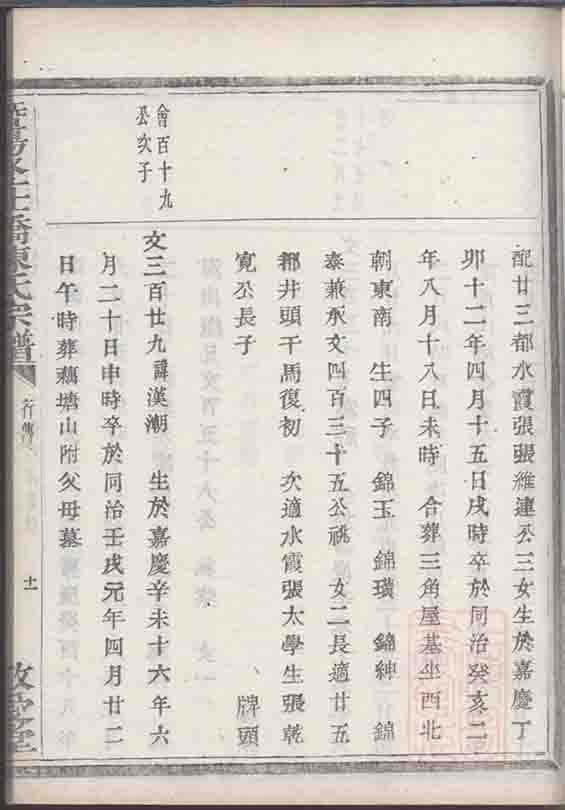 配廿三都水霞張張維建公三女生於嘉慶丁
卯十二年四月十五日戌時卒於同治癸亥二
年八月十八日未時 合葬三角屋基坐西北
朝東南 生四子 錦玉 錦璜 錦紳 錦
泰兼承文四百三十五公祧 女二長適廿五
都井頭干馬復初 次適水霞張太學生張乾
寬公長子 牌頭
會百十九
公次子
文三百廿九諱漢潮 生於嘉慶辛未十六年六
月二十日申時卒於同治壬戌元年四月廿二
日午時葬藕塘山附父母墓
橋陳氏宗譜
行傳
十一